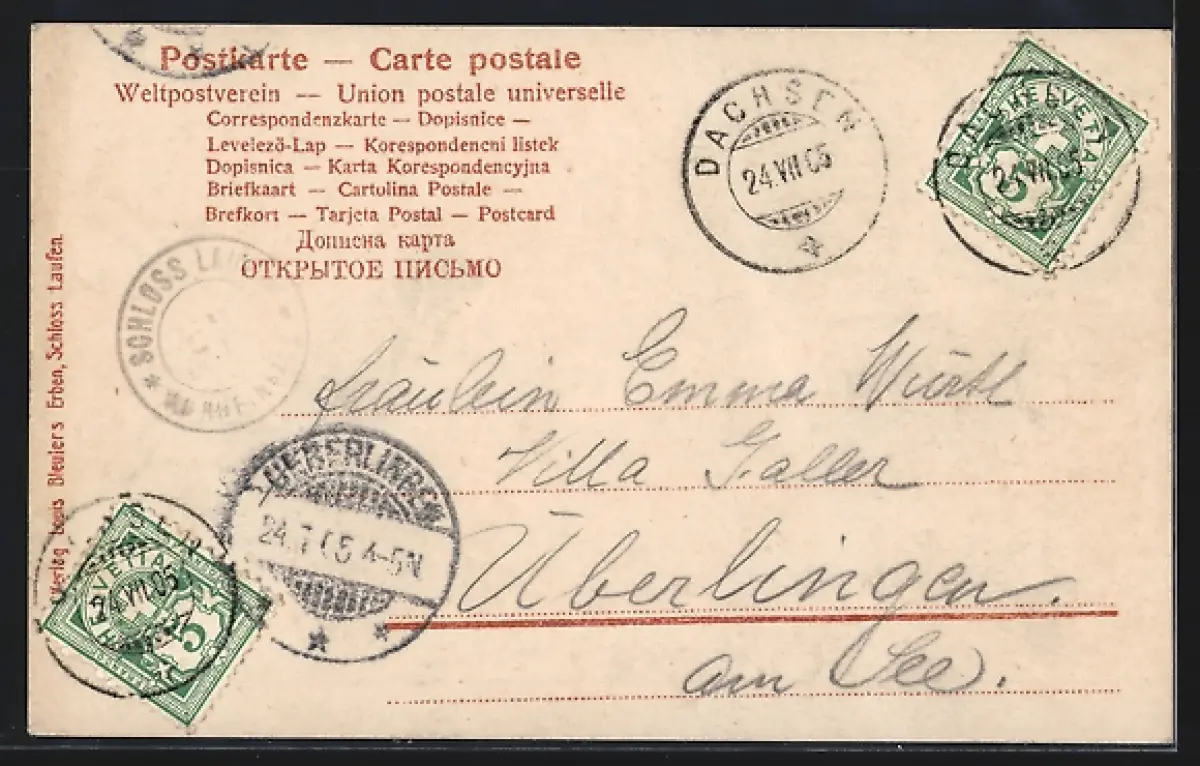 Postkarte — Carte postale
Weltpostverein — Union postale universelle
Correspondenzkarte — Dopisnice —
Levelező-Lap — Korespondencni listek
Dopisnica — Karta Korespondencyjna
Briefkaart — Cartolina Postale —
Brefkort — Tarjeta Postal — Postcard
Дописна карта
ОТКРЫТОЕ ПИСЬМО
DACHSEN
24.VII.05
DACHSEN
24.VII.05
HELVETIA
5
SCHLOSS LAUFEN
Verlag Louis Bleulers Erben, Schloss Laufen.
Fräulein Emma Würth
Villa Faller
Überlingen.
am See.
UEBERLINGEN
24.7.05 4-5N
HELVETIA
24.VII.05
5